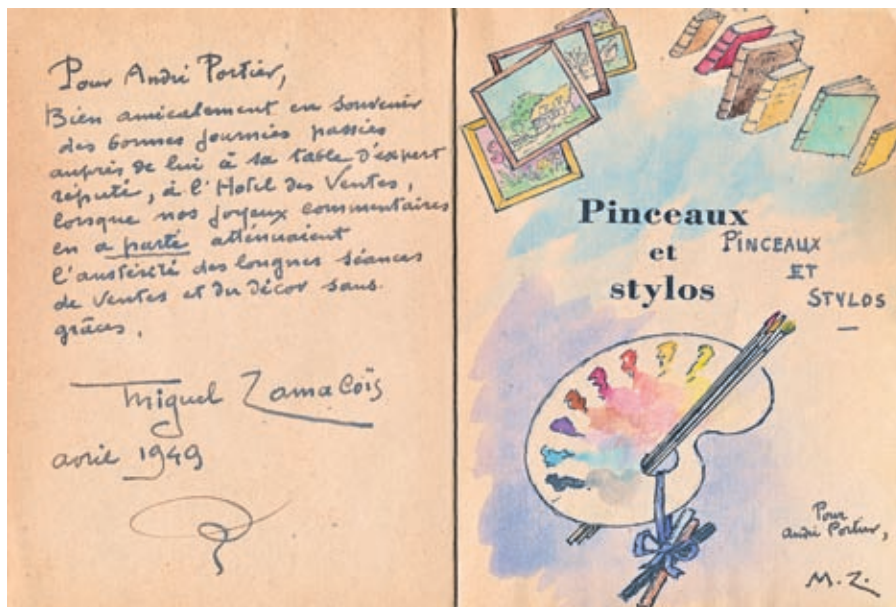 Pour André Portier,
Bien amicalement en souvenir
des bonnes journées passées
auprès de lui à sa table d'expert
réputé, à l'Hotel des Ventes,
lorsque nos joyeux commentaires
en a parté atténuaient
l'austérité des longues séances
de Ventes et du décor sans
grâces.
Miguel Zamacoïs
avril 1949
Pinceaux
et
stylos
PINCEAUX
ET
STYLOS
Pour
André Portier,
M.Z.